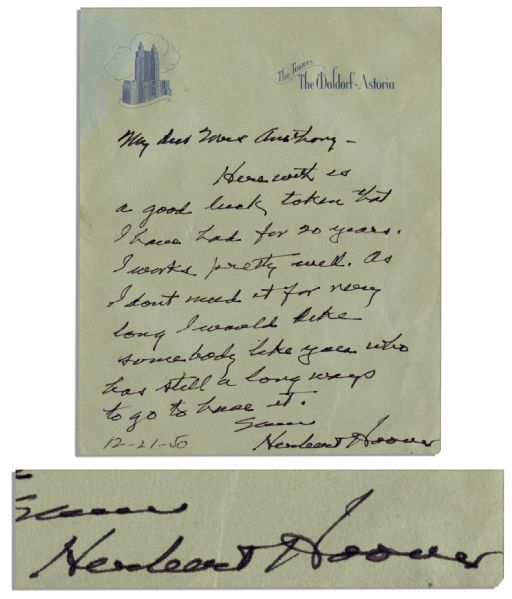 The Towers
The Waldorf-Astoria
My dear Mrs Anthony —
Herewith is
a good luck token that
I have had for 20 years.
I works pretty well. As
I dont need it for very
long I would like
somebody like you who
has still a long ways
to go to have it.
Herbert Hoover
12-21-50
Herbert Hoover